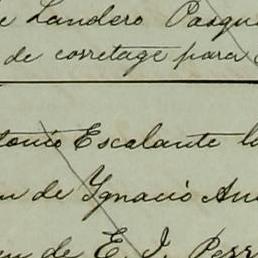 e Landero Pasqu
de corretage para
tonio Escalante l
n de Ygnacio An
en de E. J. Perr